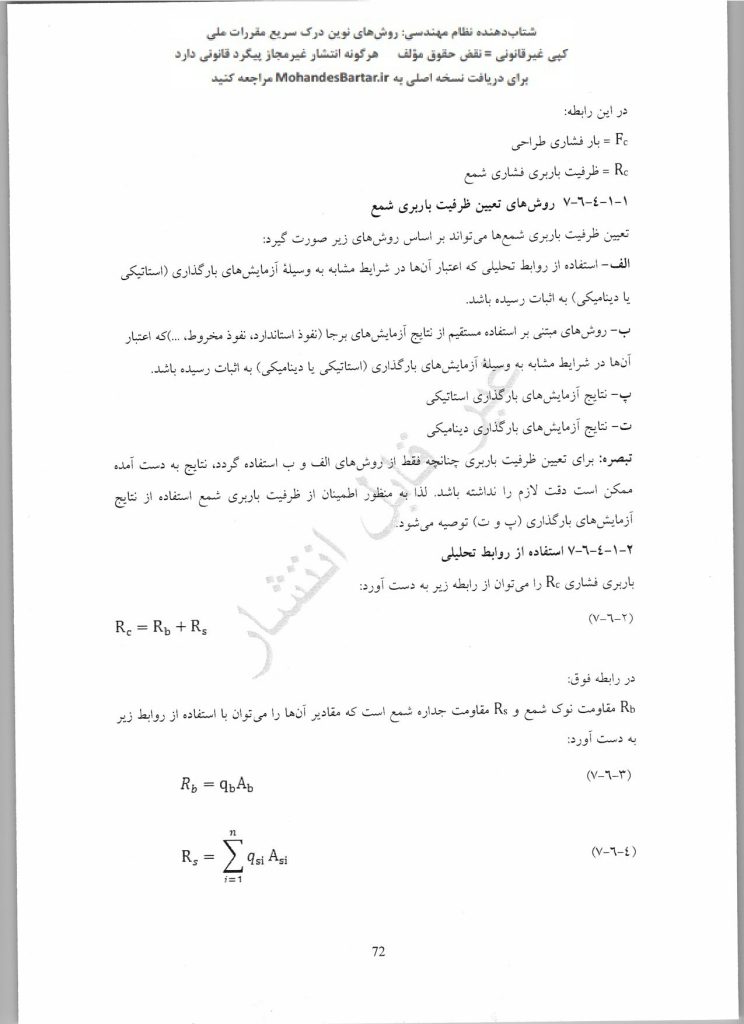 شتاب‌دهنده نظام مهندسی: روش‌های نوین درک سریع مقررات ملی
کپی غیرقانونی = نقض حقوق مؤلف هرگونه انتشار غیرمجاز پیگرد قانونی دارد
برای دریافت نسخه اصلی به MohandesBartar.ir مراجعه کنید
در این رابطه:
Fc = بار فشاری طراحی
Rc = ظرفیت باربری فشاری شمع
۷-٦-٤-۱-۱ روش‌های تعیین ظرفیت باربری شمع
تعیین ظرفیت باربری شمع‌ها می‌تواند بر اساس روش‌های زیر صورت گیرد:
الف- استفاده از روابط تحلیلی که اعتبار آن‌ها در شرایط مشابه به وسیلۀ آزمایش‌های بارگذاری (استاتیکی
یا دینامیکی) به اثبات رسیده باشد.
ب- روش‌های مبتنی بر استفاده مستقیم از نتایج آزمایش‌های برجا (نفوذ استاندارد، نفوذ مخروط، ...)که اعتبار
آن‌ها در شرایط مشابه به وسیلۀ آزمایش‌های بارگذاری (استاتیکی یا دینامیکی) به اثبات رسیده باشد.
پ- نتایج آزمایش‌های بارگذاری استاتیکی
ت- نتایج آزمایش‌های بارگذاری دینامیکی
تبصره: برای تعیین ظرفیت باربری چنانچه فقط از روش‌های الف و ب استفاده گردد، نتایج به دست آمده
ممکن است دقت لازم را نداشته باشد. لذا به منظور اطمینان از ظرفیت باربری شمع استفاده از نتایج
آزمایش‌های بارگذاری (پ و ت) توصیه می‌شود.
۷-٦-٤-۱-۲ استفاده از روابط تحلیلی
باربری فشاری Rc را می‌توان از رابطه زیر به دست آورد:
(۷-٦-۲) R_c = R_b + R_s
در رابطه فوق:
Rb مقاومت نوک شمع و Rs مقاومت جداره شمع است که مقادیر آن‌ها را می‌توان با استفاده از روابط زیر
به دست آورد:
(۷-٦-۳) R_b = q_b A_b
(۷-٦-٤) R_s = ∑_{i=1}^{n} q_si A_si
72
غیر قابل انتشار